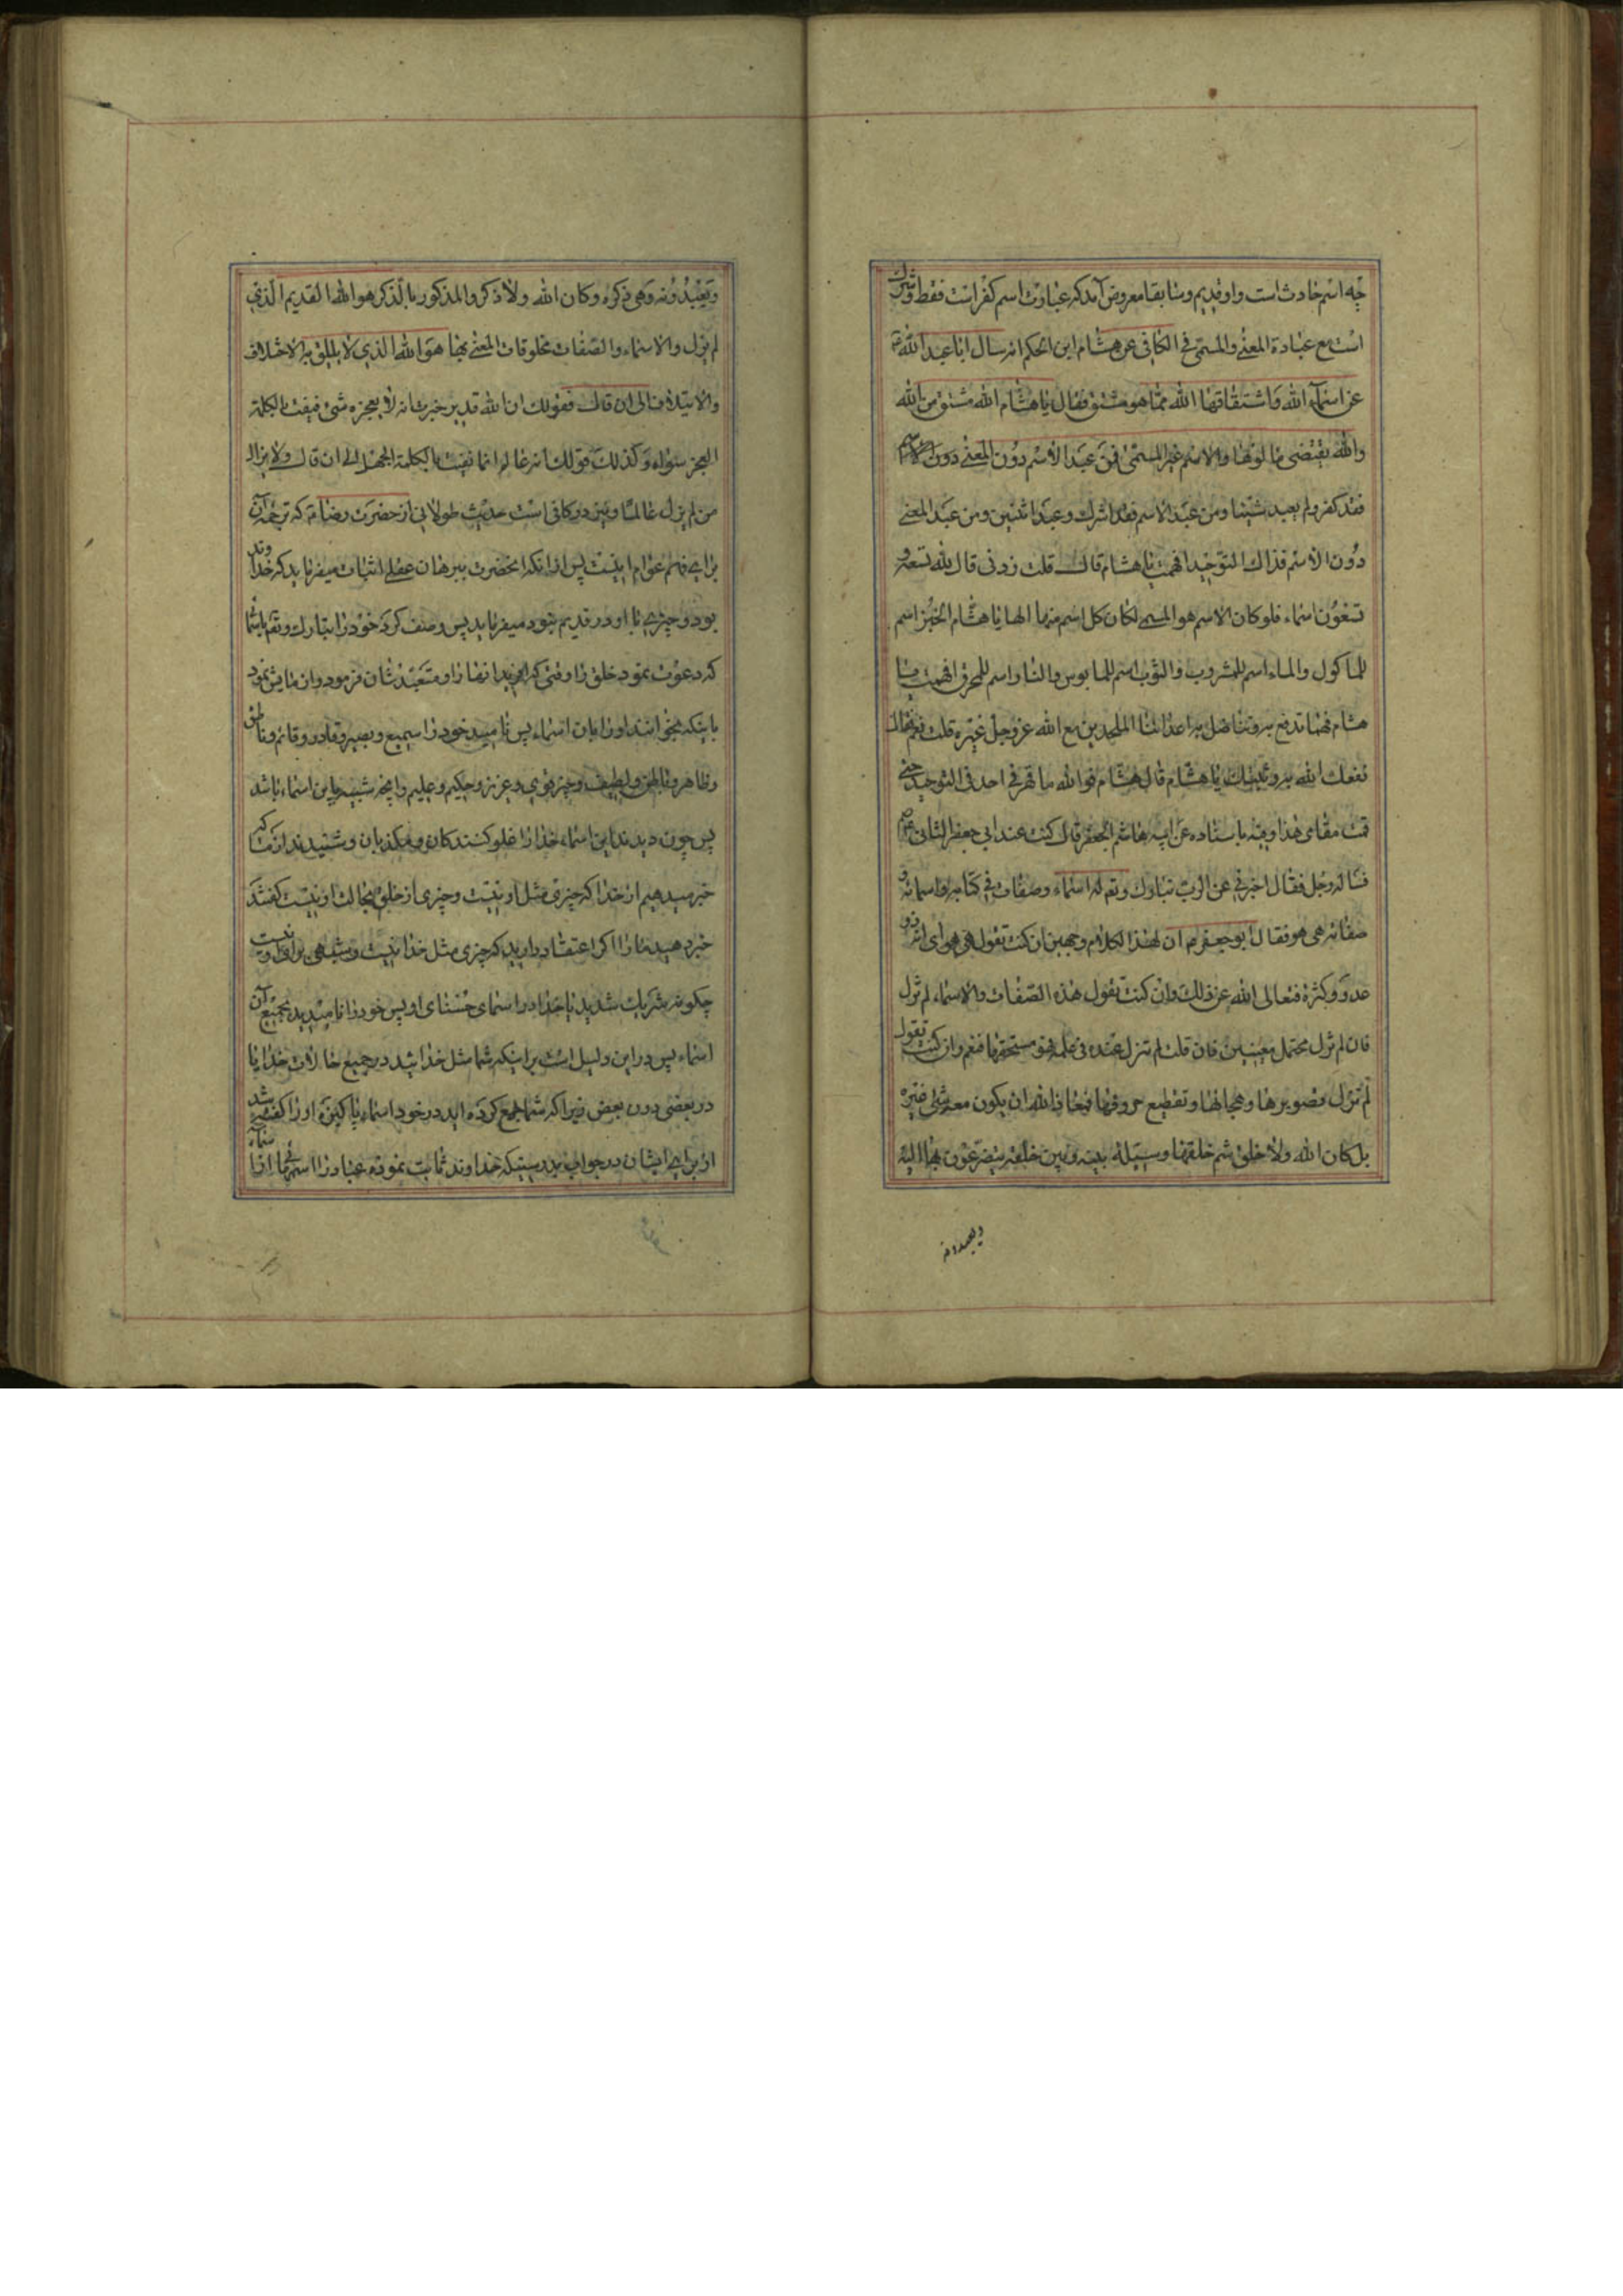 چه اسم حادث است و او قدیم و سابقا معروض آمد که عبادت اسم کفر است فقط و شرک
است مع عبادة المعنی و المسمی فی الکافی عن هشام ابن الحکم انه سال ابا عبد الله ع
عن اسماء الله و اشتقاقها الله مما هو مشتق فقال یا هشام الله مشتق من اله
و اله یقتضی مالوها و الاسم غیر المسمی فمن عبد الاسم دون المعنی
فقد کفر و لم یعبد شیئا و من عبد الاسم فقد اشرک و عبد اثنین و من عبد المعنی
دون الاسم فذاک التوحید افهمت یا هشام قال قلت زدنی قال لله تسعة و
تسعون اسماء فلو کان الاسم هو المسمی لکان کل اسم منها الها یا هشام الخبز اسم
للماکول و الماء اسم للمشروب و الثوب اسم للملبوس و النار اسم للمحرق افهمت یا
هشام فهما تدفع به و تناضل به اعدائنا الملحدین مع الله عز و جل غیره قلت نعم فقال
نفعک الله به و ثبتک یا هشام قال هشام فو الله ما قهرنی احد فی التوحید حتی
قمت مقامی هذا و فیه باسناده عن ابی هاشم الجعفری قال کنت عند ابی جعفر الثانی ع
فساله رجل فقال اخبرنی عن الرب تبارک و تعالی له اسماء و صفات فی کتابه و اسمائه و
صفاته هی هو فقال ابو جعفر ع ان لهذا الکلام وجهین ان کنت تقول هی هو ای انه ذو
عدد و کثرة فتعالی الله عن ذلک و ان کنت تقول هذه الصفات و الاسماء لم تزل
فان لم تزل محتمل معنیین فان قلت لم تزل عنده فی علمه و هو مستحقها فنعم و ان کنت تقول
لم تزل تصویرها و هجائها و تقطیع حروفها فمعاذ الله ان یکون معه شئ غیره
بل کان الله و لا خلق ثم خلقها وسیلة بینه و بین خلقه یتضرعون بها الیه
ویعبدونه
و یعبدونه و هی ذکره و کان الله و لا ذکر و المذکور بالذکر هو الله القدیم الذی
لم یزل و الاسماء و الصفات مخلوقات المعنی بها هو الله الذی لا یلیق به الاختلاف
و الایتلاف الی ان قال فقولک ان الله قدیر خبرت انه لا یعجزه شئ فنفیت بالکلمة
العجز سواه و کذلک قولک انه عالم انما نفیت بالکلمة الجهل الی ان قال و لا یزال
من لم یزل عالما و نیز در کافی است حدیث طولانی از حضرت رضا ع که ترجمه آن
برای فهم عوام اینست پس از انکه انحضرت ببرهان عقلی اثبات میفرماید که خداوند
بود و چیزی با او در قدیم نبود میفرماید پس وصف کرد خود را تبارک و تعالی باسماء
که دعوت نمود خلق را وقتی که افرید انها را و متعبد شان فرمود و ازمایش نمود
باینکه بخوانند او را بان اسماء پس نامید خود را سمیع و بصیر و قادر و قائم و ناطق
و ظاهر و باطن و لطیف و خبیر و قوی و عزیز و حکیم و علیم و انچه شبیه باین اسماء باشد
پس چون دیدند این اسماء خدا را غلو کنندکان و مکذبان و شنیدند از ما که
خبر میدهیم از خدا که چیزی مثل او نیست و چیزی از خلق بحالت او نیست کفتند
خبر دهید ما را اکر اعتقاد دارید که چیزی مثل خدا نیست و شبیهی برای او نیست
چکونه شریک شدید با خدا در اسمای حسنای او پس خود را نامیدید بجمیع آن
اسماء پس در این دلیل است بر اینکه شما مثل خدائید در جمیع حالات خدا یا
در بعضی دون بعض زیرا که شما جمع کرده اید در خود اسماء پاکیزه او را کفته شد
از برای ایشان در جواب بدرستیکه خداوند ثابت نموده عباد را اسمهائی از اسماء